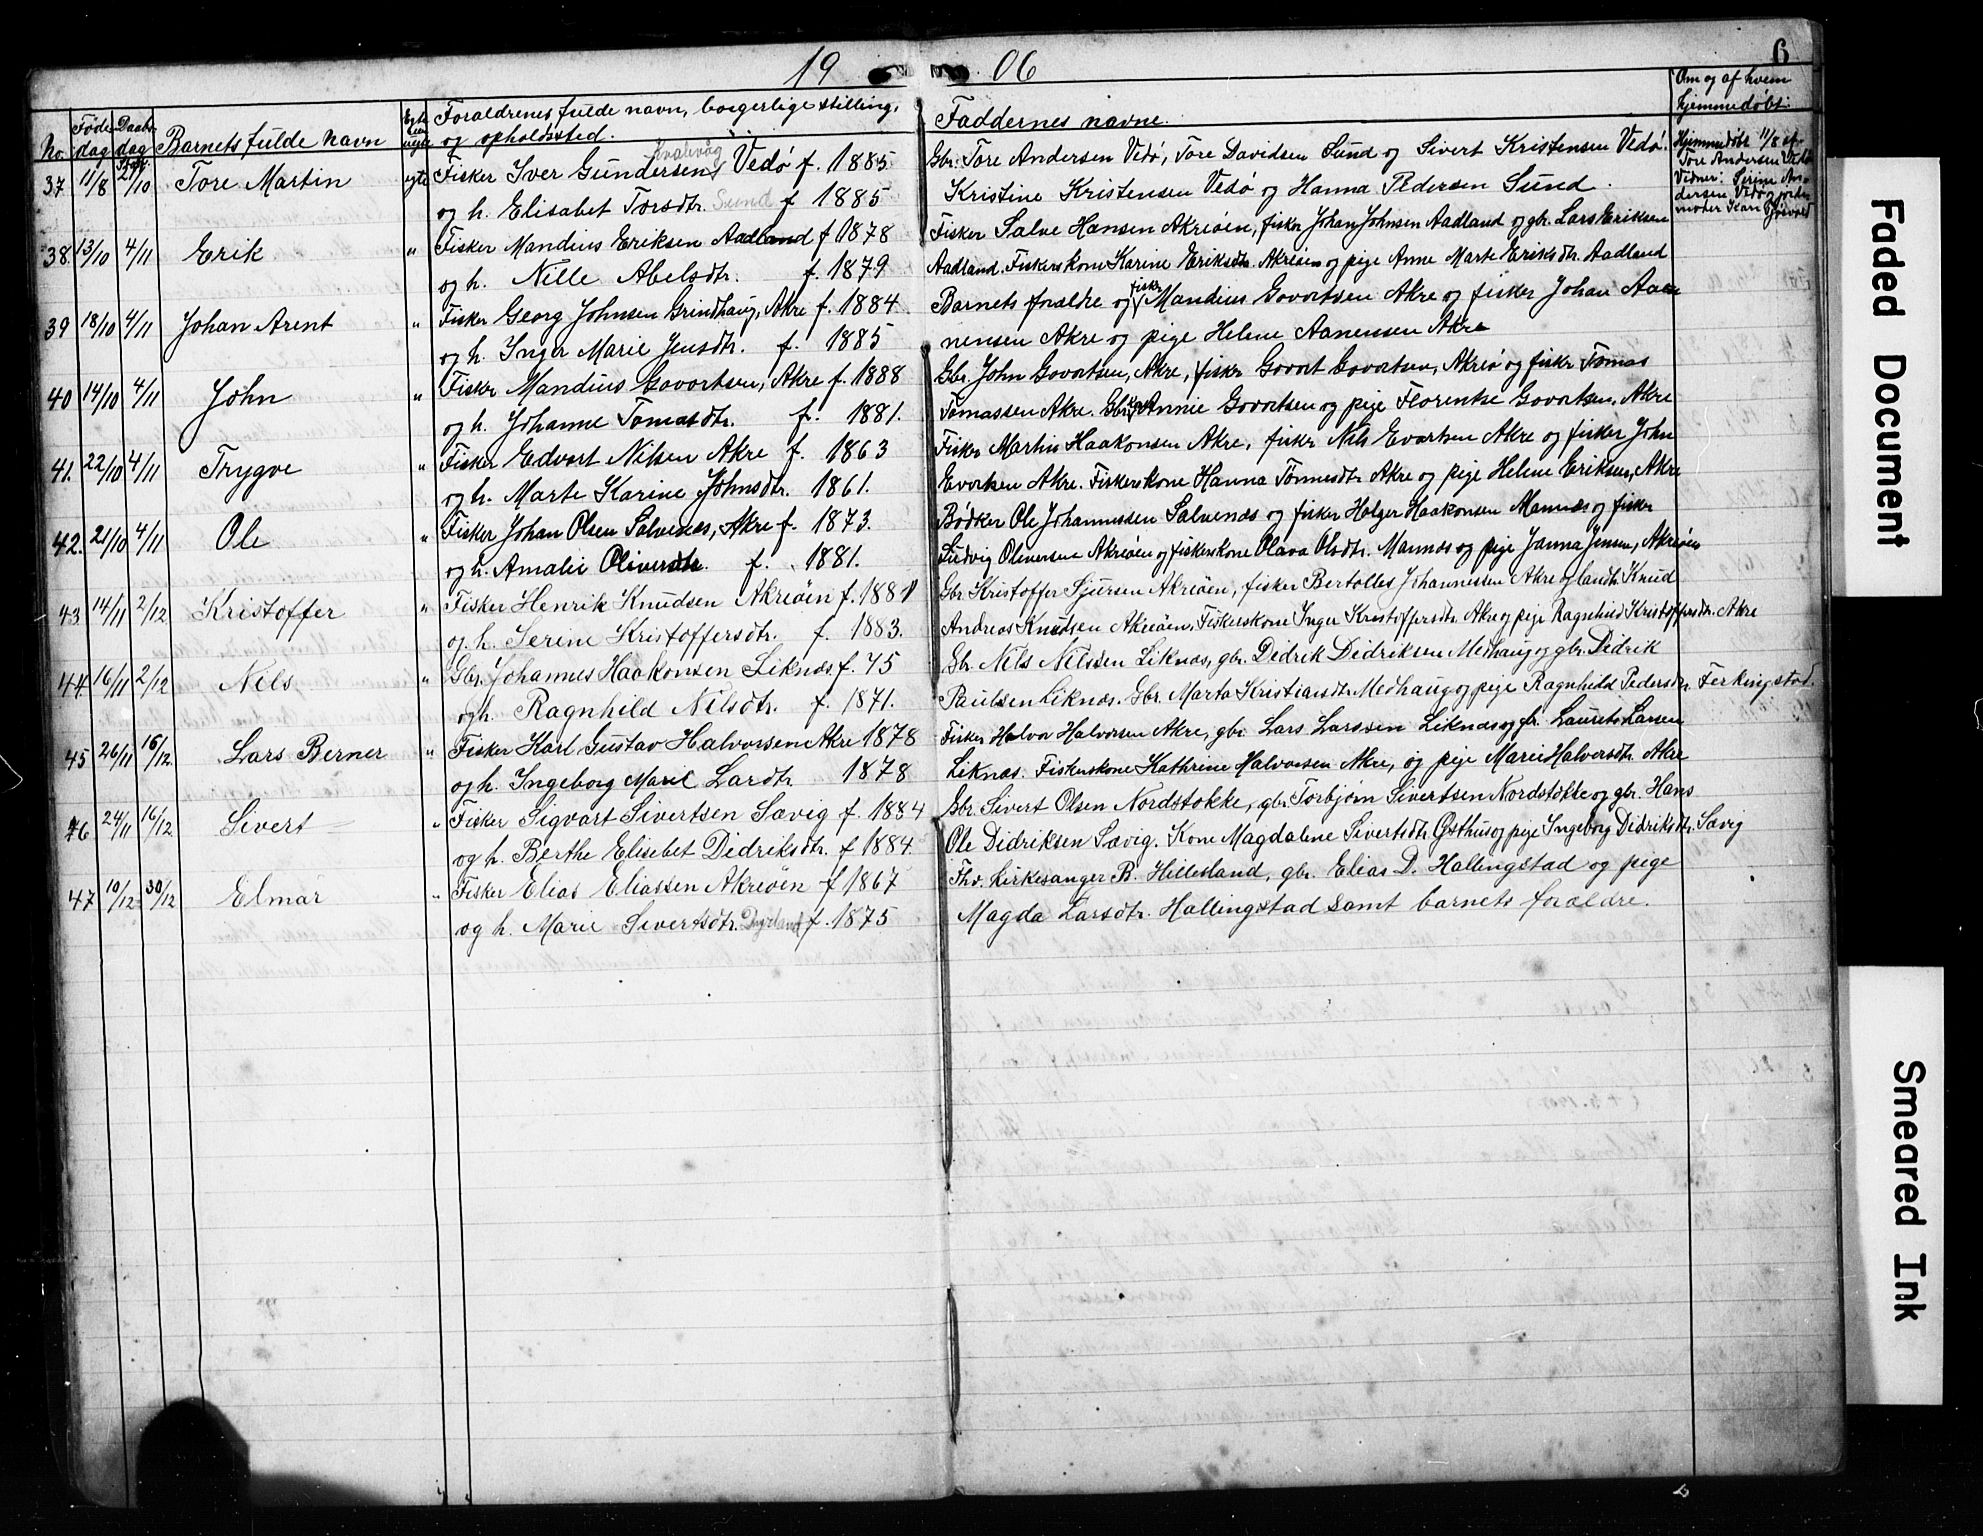 19 06
6
No. Føde dag Daabs dag Barnets fulde navn Egte eller uegte Foraldrenes fulde navn, borgerlige stilling, og opholdssted. Faddernes navne. Om og af hvem hjemmedøbt.
37 11/8 21/10 Tore Martin egte Fisker Iver Gundersen Kvalavåg Vedø f. 1885 Gbr. Tore Andersen Vedø, Tore Davidsen Sund og Sivert Kristensen Vedø. Hjemmedøbt 11/8 af
og h. Elisabet Torsdtr. Sund f 1885 Kristine Kristensen Vedø og Hanna Pedersen Sund. Tore Andersen Vedø
Vidner: Sirine An-
dersen Vedø og jorde-
moder Kari
38. 13/10 4/11 Erik " Fisker Mandius Eriksen Aadland f 1878 Fisker Salve Hansen Akreøen, fisker Johan Johnsen Aadland og gbr. Lars Eriksen
og h. Nille Abelsdtr. f. 1879 Aadland. Fiskerskone Karine Eriksdtr. Akreøen og pige Anne Marte Eriksdtr. Aadland
39 18/10 4/11 Johan Arent " Fisker Georg Johnsen Grindhaug, Akre f. 1884 Barnets foraldre og fisker Mandius Govortsen Akre og fisker Johan Aan
og h. Inger Marie Jensdtr. f. 1885 nensen Akre og pige Helene Aanensen Akre
40 14/10 4/11 John " Fisker Mandius Govortsen, Akre f. 1888 Gbr. John Govortsen, Akre, fisker Govort Govortsen, Akreø og fisker Tomas
og h. Johanne Tomasdtr. f. 1881. Tomassen Akre. Gbr.k. Annie Govortsen og pige Florentse Govortsen, Akre
41. 22/10 4/11 Trygve " Fisker Edvort Nilsen Akre f. 1863 Fisker Martin Haakonsen Akre, fisker Nils Evortsen Akre og fisker John
og h. Marte Karine Johnsdtr. 1861. Evortsen Akre. Fiskerskone Hanna Tønnesdtr Akre og pige Helene Eriksen, Akre
42. 21/10 4/11 Ole " Fisker Johan Olsen Salvenæs, Akre f. 1873. Bødker Ole Johannessen Salvenæs og fisker Holger Haakonsen Mannæs og fisker
og h. Amalie Oliversdtr. f. 1881. Ludvig Oliversen Akreøen og fiskerskone Olava Olsdtr. Mannæs og pige Janna Jensen, Akreøen
43 14/11 2/12 Kristoffer " Fisker Henrik Knudsen Akreøen f. 1881 Gbr. Kristoffer Sjursen Akreøen, fisker Bertolles Johannessen Akre og landh. Knud
og. h. Serine Kristoffersdtr. f. 1883. Andreas Knudsen Akreøen. Fiskerskone Inger Kristoffersdtr. Akre og pige Ragnhild Kristoffersdtr. Akre
44. 16/11 2/12 Nils " Gbr. Johannes Haakonsen Liknæs f. 75 Gbr. Nils Nilssen Liknæs, gbr. Didrik Didriksen Medhaug og gbr. Didrik
og h. Ragnhild Nilsdtr. f. 1871. Paulsen Liknæs. Gbr. Marta Kristiansdtr Medhaug og pige Ragnhild Pedersdtr. Ferkingstad.
45 26/11 16/12. Lars Berner " Fisker Karl Gustav Halvorsen Akre 1878 Fisker Halvor Halvorsen Akre, gbr. Lars Larssen Liknæs og gbr. Laurits Larsen
og h. Ingeborg Marie Larsdtr. 1878 Liknæs. Fiskerskone Kathrine Halvorsen Akre, og pige Marie Halvorsdtr. Akre
46 24/11 16/12 Sivert " Fisker Sigvart Sivertsen Sævig f. 1884 Gbr. Sivert Olsen Nordstokke, gbr. Torbjørn Sivertsen Nordstokke og gbr. Hans
og h. Berthe Elisebet Didriksdtr. f 1884. Ole Didriksen Sævig. Kone Magdalene Sivertsdtr. Østhus og pige Ingeborg Didriksdtr. Sævig
47 10/12 30/12 Elmar " Fisker Elias Eliassen Akreøen f 1867 Fhv. kirkesanger B. Hillesland, gbr. Elias D. Hallingstad og pige
og h. Marie Sivertsdtr. Dyrland f. 1875 Magda Larsdtr. Hallingstad samt barnets foraldre.
Faded Document
Smeared Ink